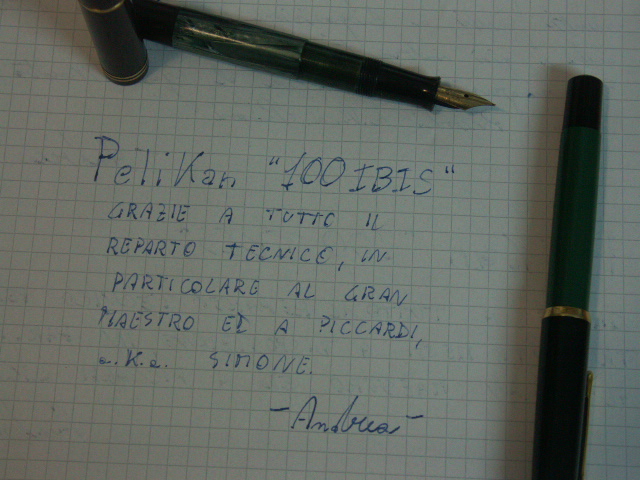 Pelikan "100 IBIS"
GRAZIE A TUTTO IL
REPARTO TECNICO, IN
PARTICOLARE AL GRAN
MAESTRO ED A PICCARDI,
a.K.a. SIMONE.
-Andrea-